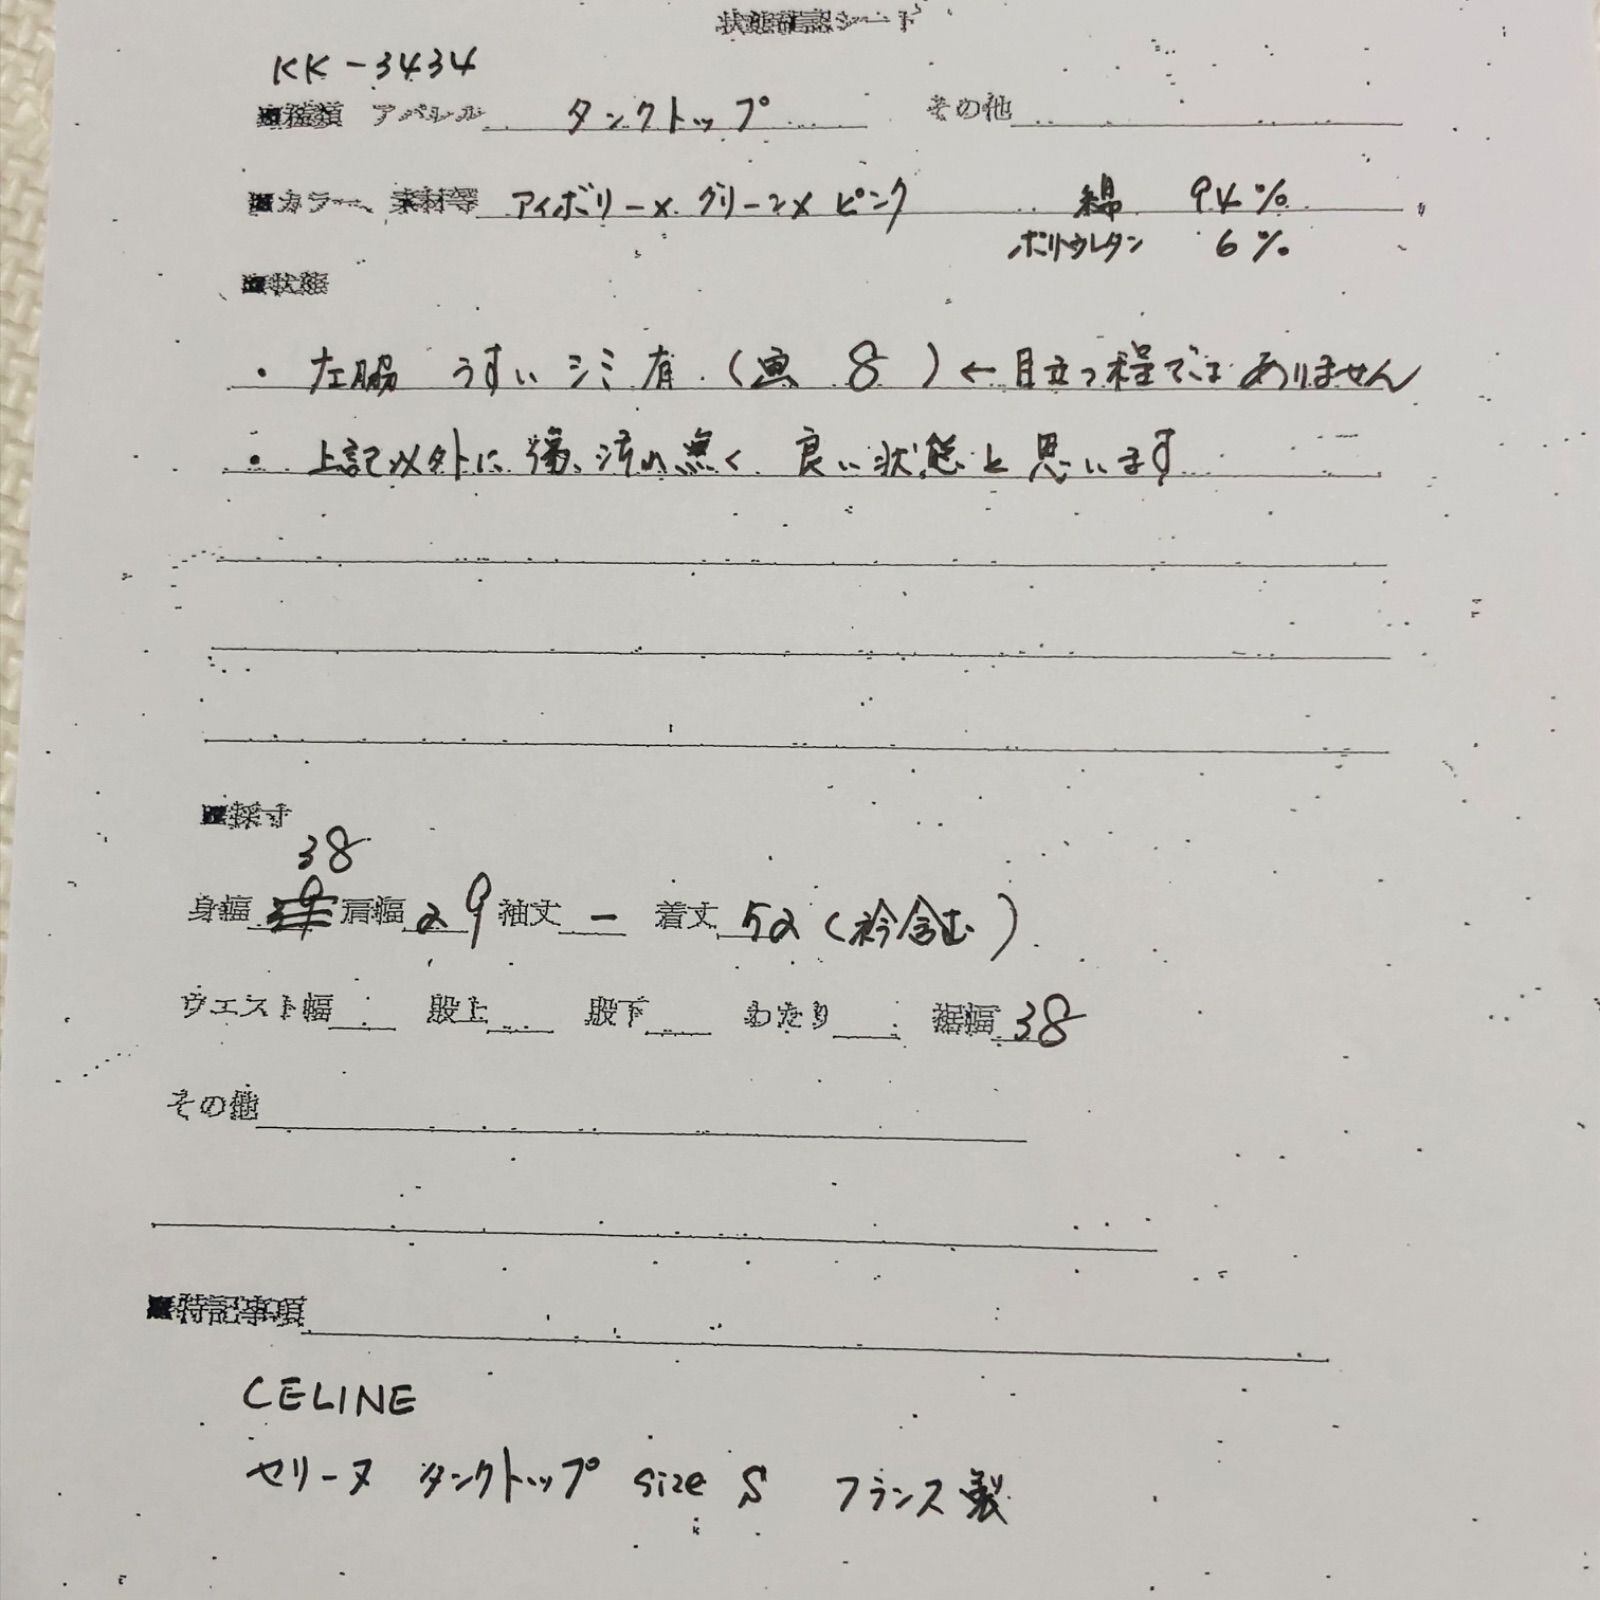 状態確認シート
KK-3434
■種類 アパレル タンクトップ その他
■カラー、素材等 アイボリー×グリーン×ピンク 綿 94%
ポリウレタン 6%
■状態
・左脇 うすいシミ有(画 8)←目立つ程ではありません
・上記以外に傷、汚れ無く 良い状態と思います
■採寸
38
身幅 39 肩幅 29 袖丈 - 着丈 52(衿含む)
ウエスト幅 股上 股下 わたり 裾幅 38
その他
■特記事項
CELINE
セリーヌ タンクトップ size S フランス製